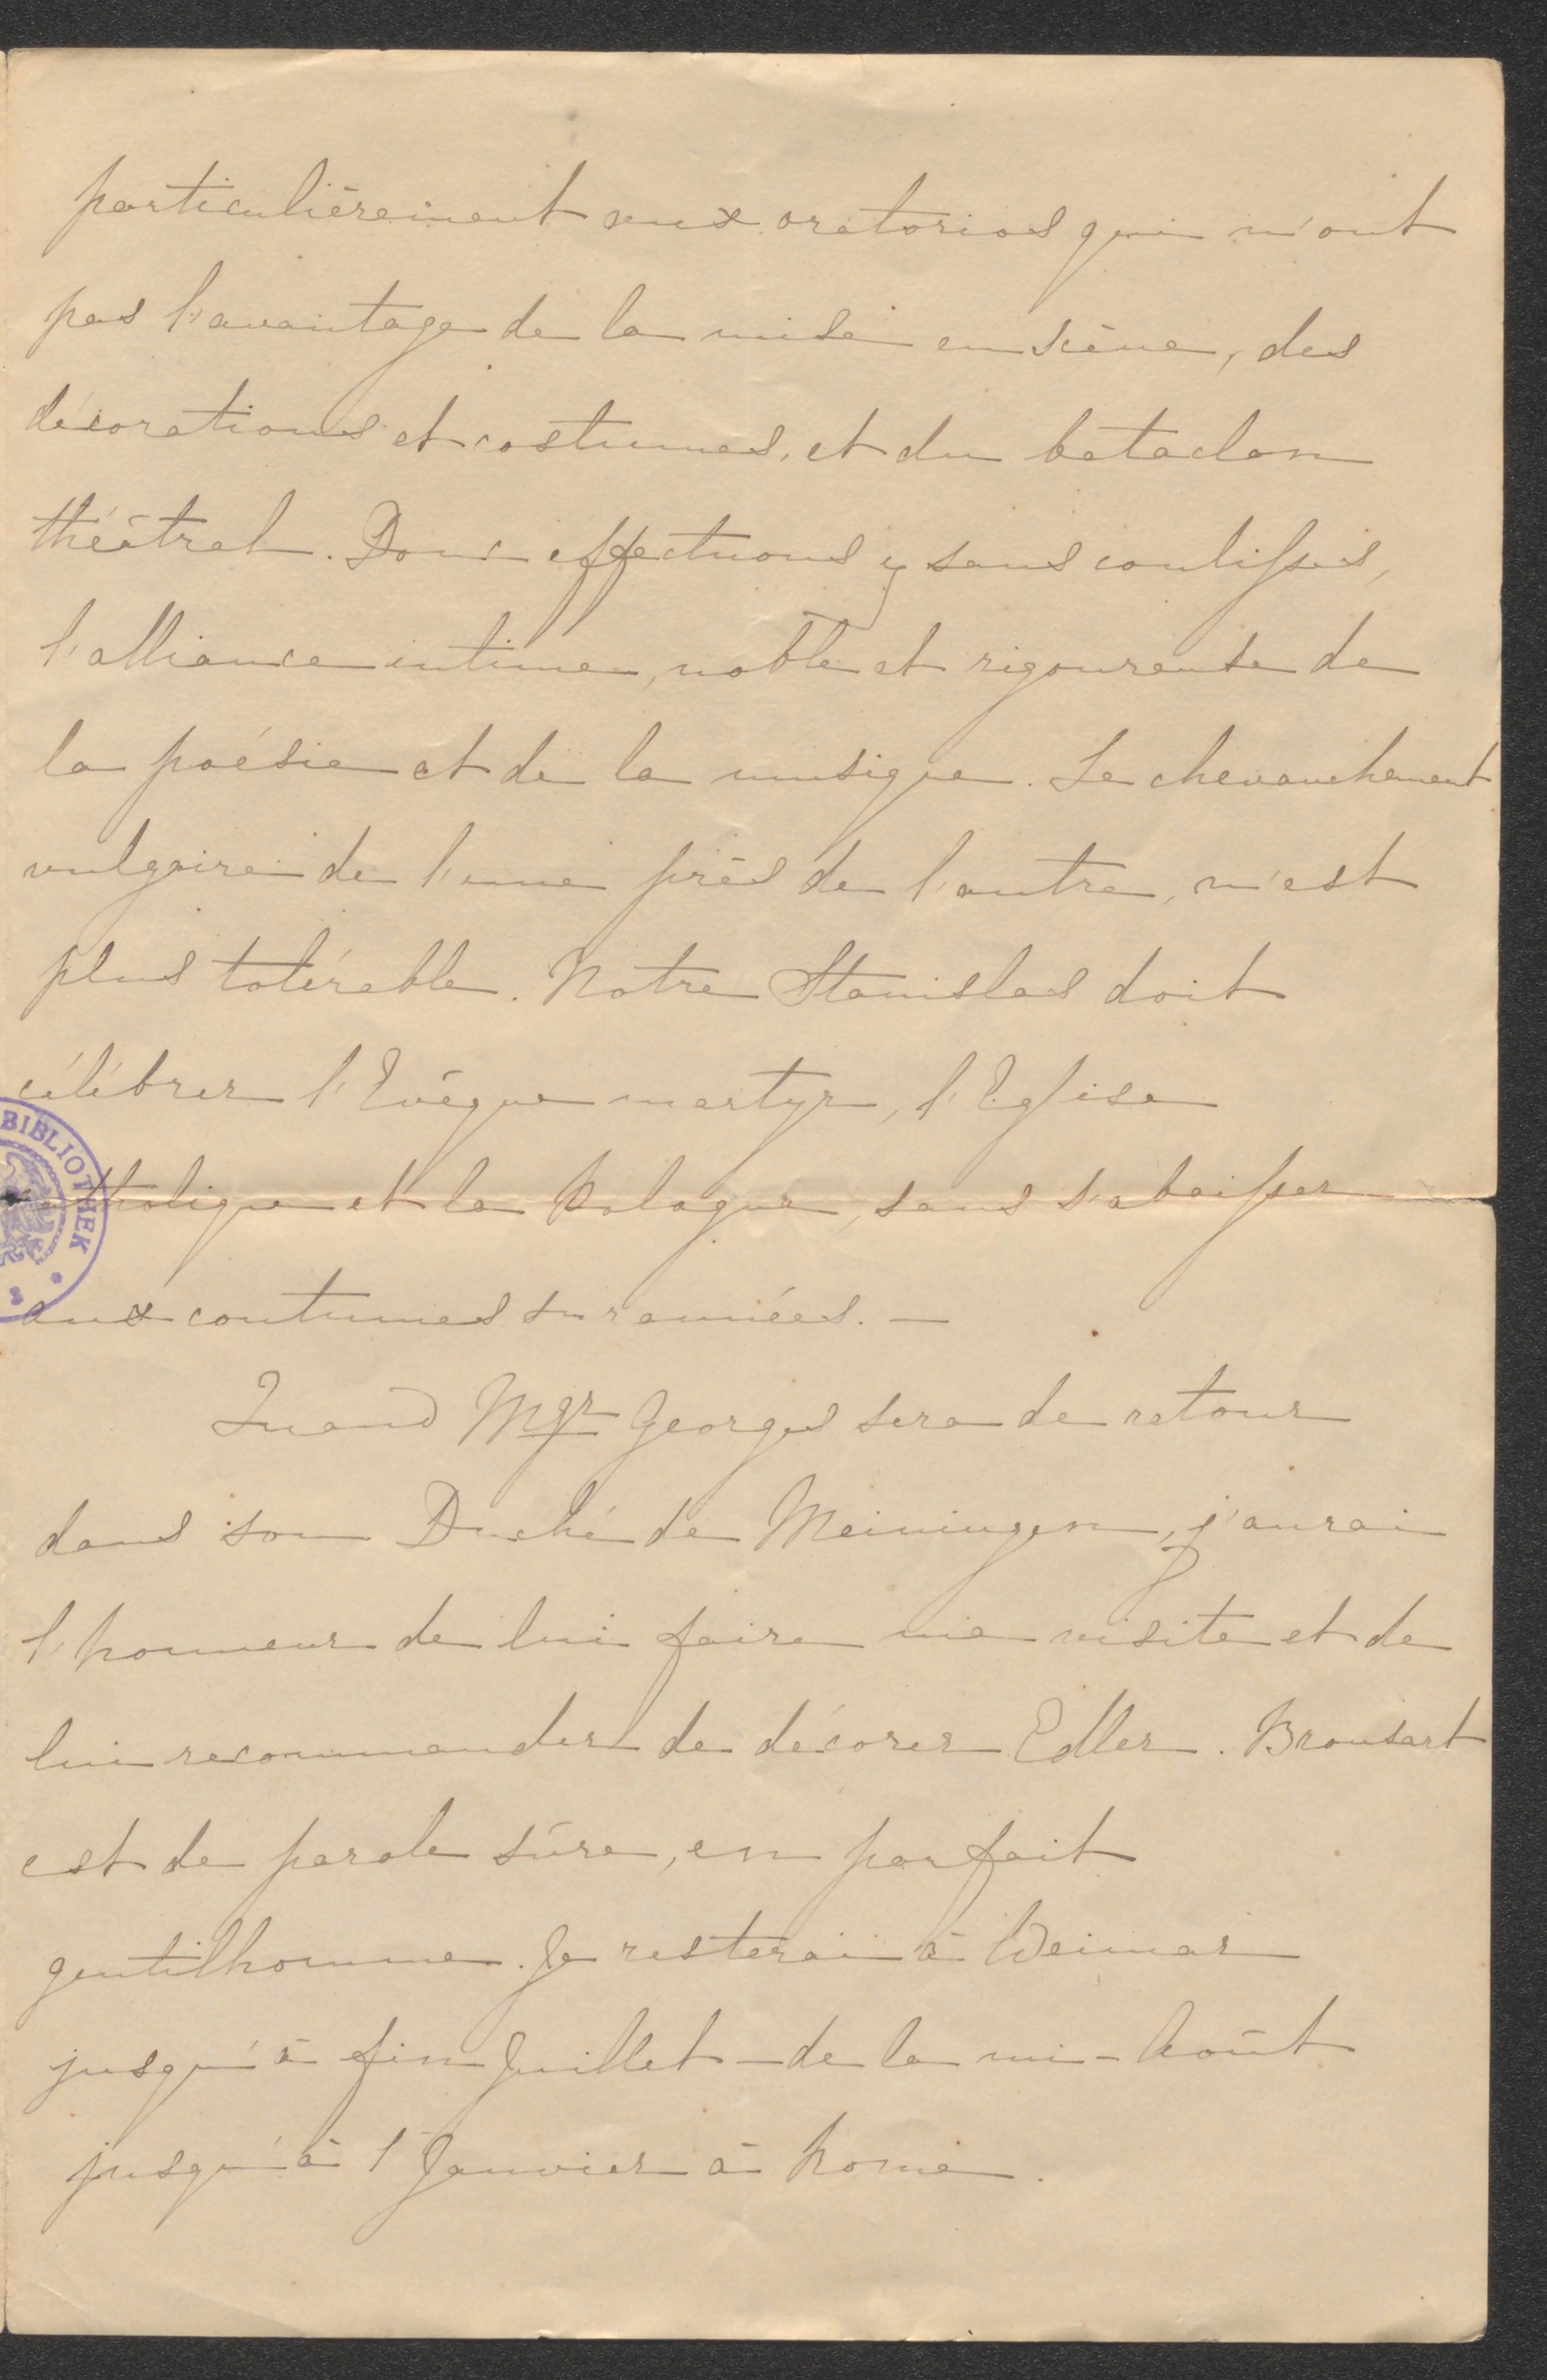 particulièrement aux oratorios qui n'ont
pas l'avantage de la mise en scène, des
décorations et costumes, et du bataclan
théâtral. Donc effectuons y sans coulisses,
l'alliance intime, noble et rigoureuse de
la poésie et de la musique. Le chevauchement
vulgaire de l'une près de l'autre, n'est
plus tolérable. Notre Stanislas doit
célébrer l'Evêque martyr, l'Eglise
catholique et la Pologne, sans s'abaisser
BIBLIOTHEK
aux coutumes surannées. —
Quand Mgr Georges sera de retour
dans son Duché de Meiningen, j'aurai
l'honneur de lui faire une visite et de
lui recommander de décorer Edler. Bronsart
est de parole sûre, en parfait
gentilhomme. Je resterai à Weimar
jusqu'à fin Juillet – de la mi-Août
jusqu'à 1 Janvier à Rome.